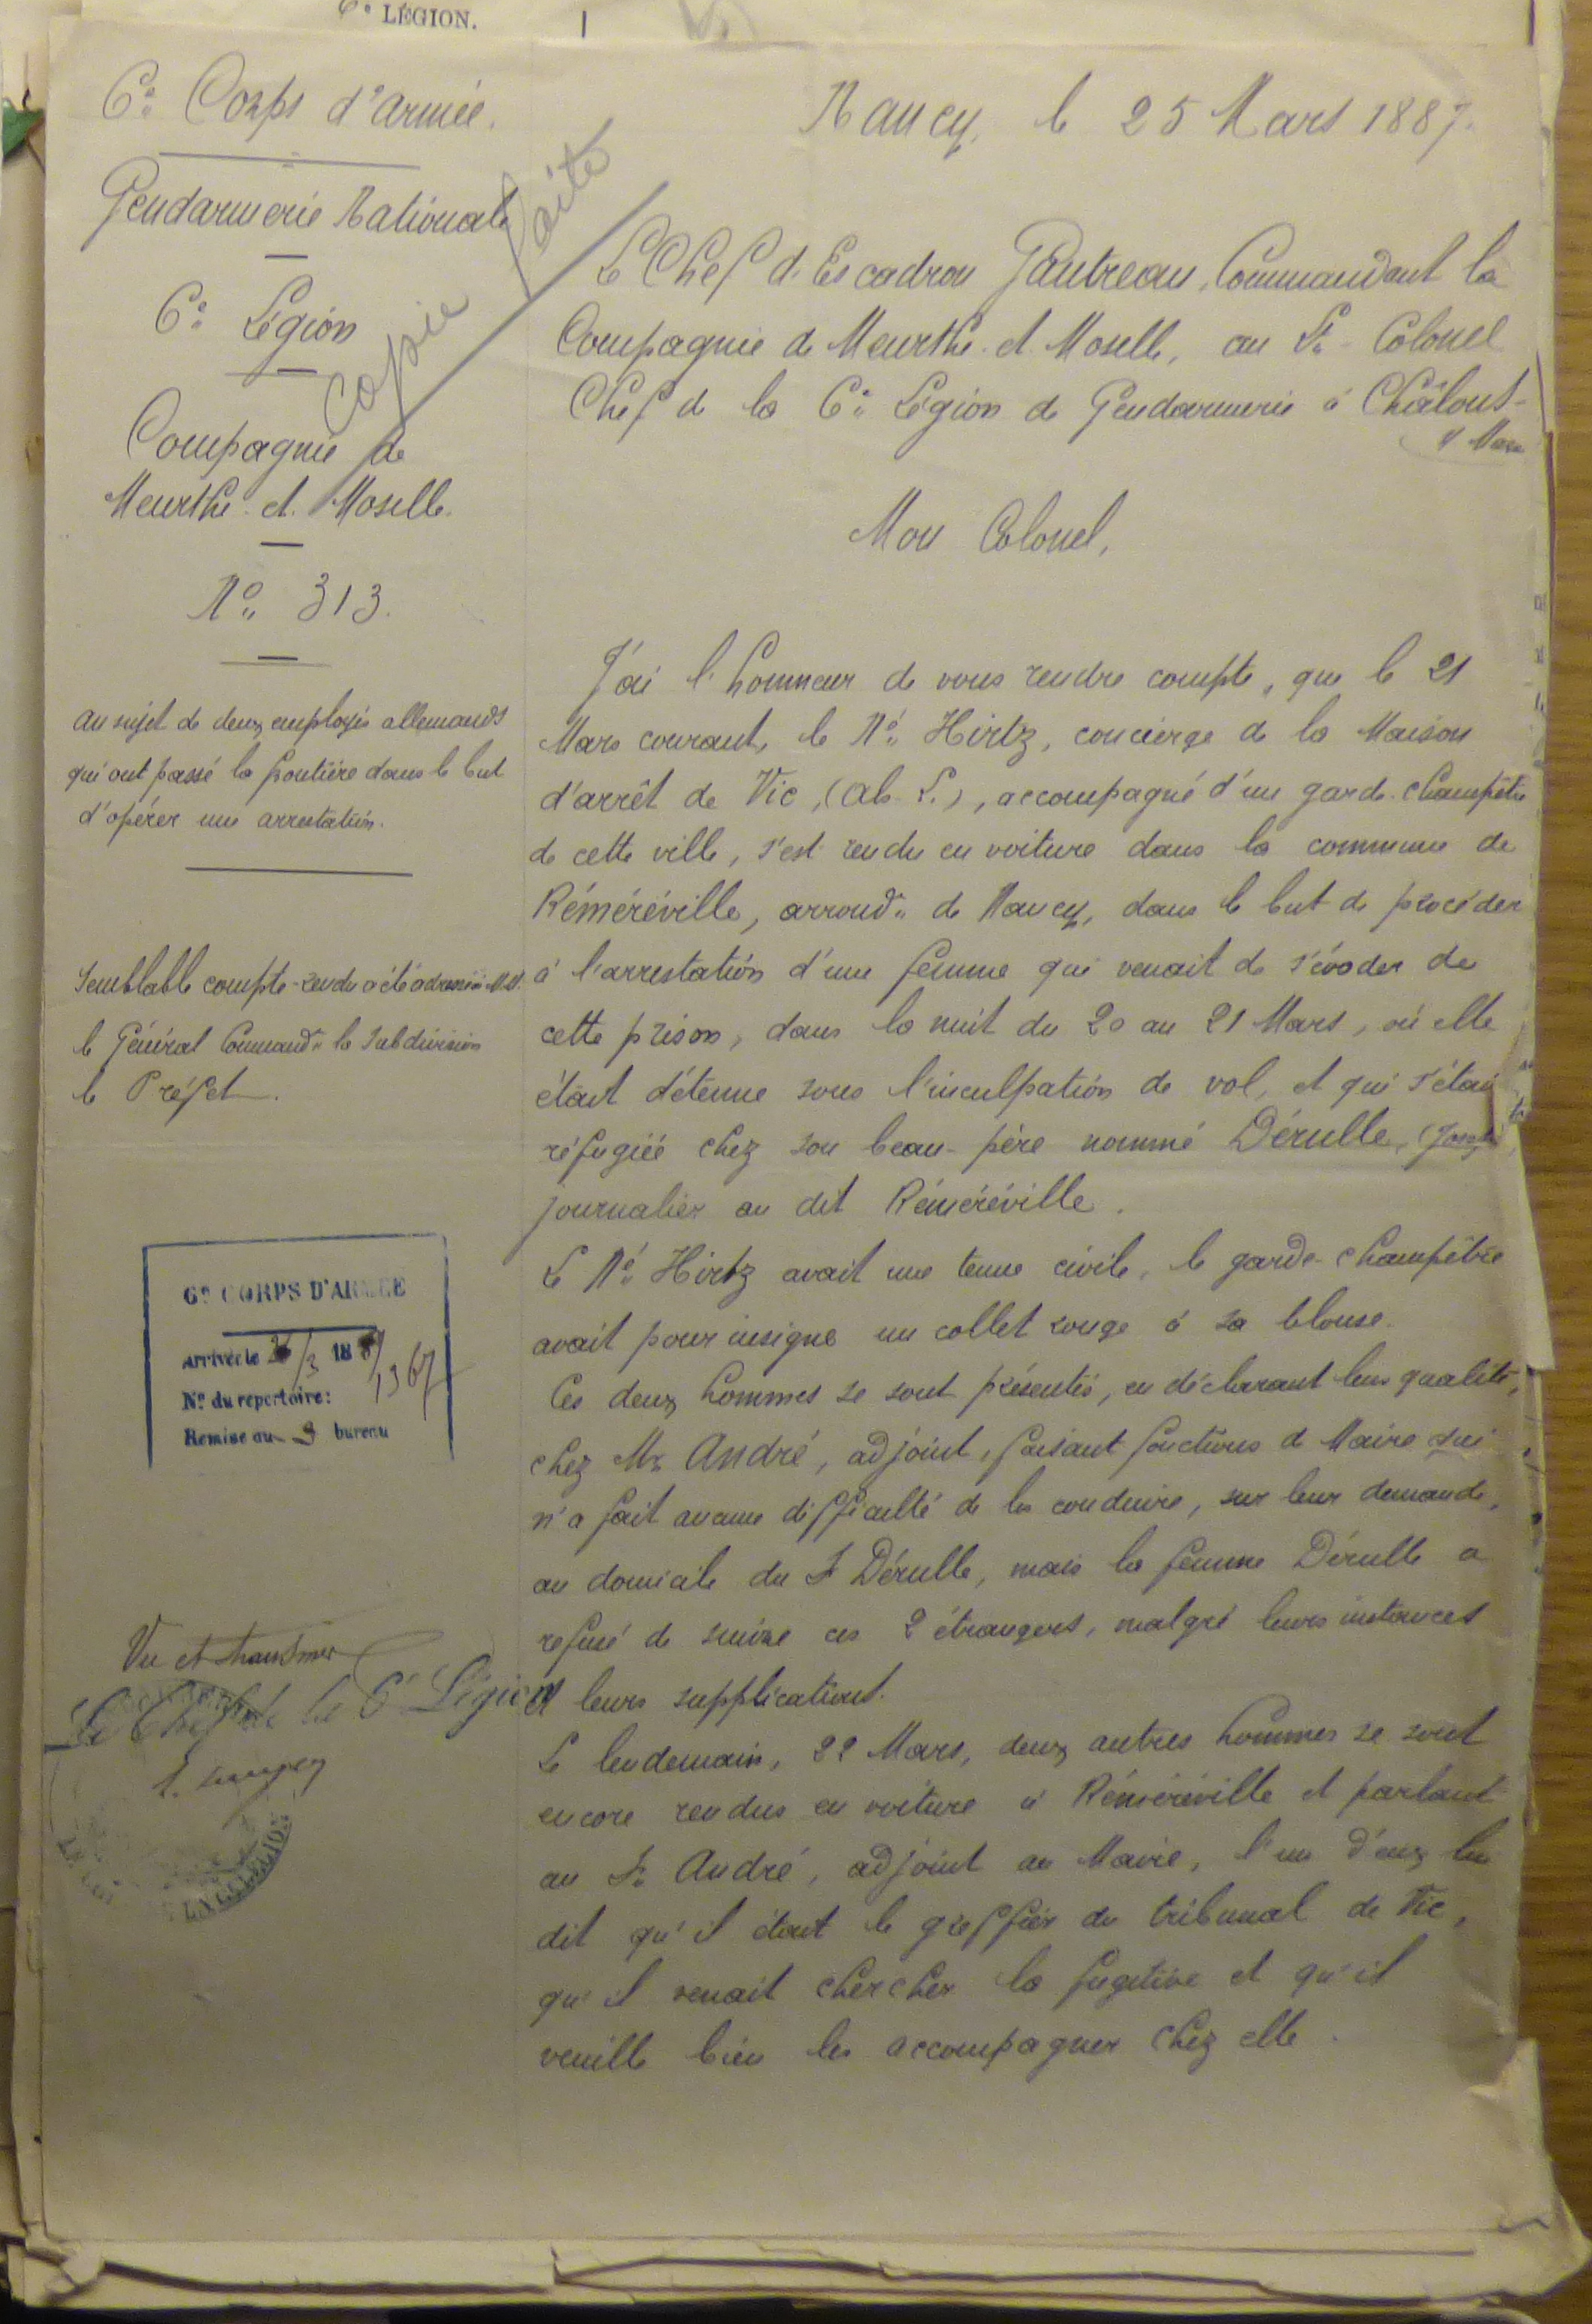 6e LÉGION.
6e Corps d'armée.
Gendarmerie Nationale
6e Légion
Compagnie de
Meurthe et Moselle.
No 313.
Copie faite
au sujet de deux employés allemands
qui ont passé la frontière dans le but
d'opérer une arrestation.
Semblable compte-rendu a été adressé à MM.
le Général Command.t la Subdivision
le Préfet.
6e CORPS D'ARMÉE
Arrivée le /3 188
No du repertoire: 1367
Remise au 3 bureau
Vu et transmis
Le Chef de la 6e Légion
LÉGION
Nancy, le 25 Mars 1887.
Le Chef d'Escadron Gautreau, Commandant la
Compagnie de Meurthe et Moselle, au Lt. Colonel
Chef de la 6e Légion de Gendarmerie à Châlons-
s/ Marne
Mon Colonel,
J'ai l'honneur de vous rendre compte, que le 21
Mars courant, le Né Hirtz, concierge de la Maison
d'arrêt de Vic, (Als. L.), accompagné d'un garde-champêtre
de cette ville, s'est rendu en voiture dans la commune de
Réméréville, arrond.t de Nancy, dans le but de procéder
à l'arrestation d'une femme qui venait de s'évader de
cette prison, dans la nuit du 20 au 21 Mars, où elle
était détenue sous l'inculpation de vol, et qui s'était
réfugiée chez son beau-père nommé Dérulle, (Joseph)
journalier au dit Réméréville.
Le Né Hirtz avait une tenue civile, le garde-champêtre
avait pour insigne un collet rouge à sa blouse.
Ces deux hommes se sont présentés, en déclarant leur qualité,
chez Mr André, adjoint, faisant fonctions de Maire qui
n'a fait aucune difficulté de les conduire, sur leur demande,
au domicile du S Dérulle, mais la femme Dérulle a
refusé de suivre ces 2 étrangers, malgré leurs instances
et leurs supplications.
Le lendemain, 22 Mars, deux autres hommes se sont
encore rendus en voiture à Réméréville et parlant
au Sr André, adjoint au Maire, l'un d'eux lui
dit qu'il était le greffier du tribunal de Vic,
qu'il venait chercher la fugitive et qu'il
veuille bien les accompagner chez elle.